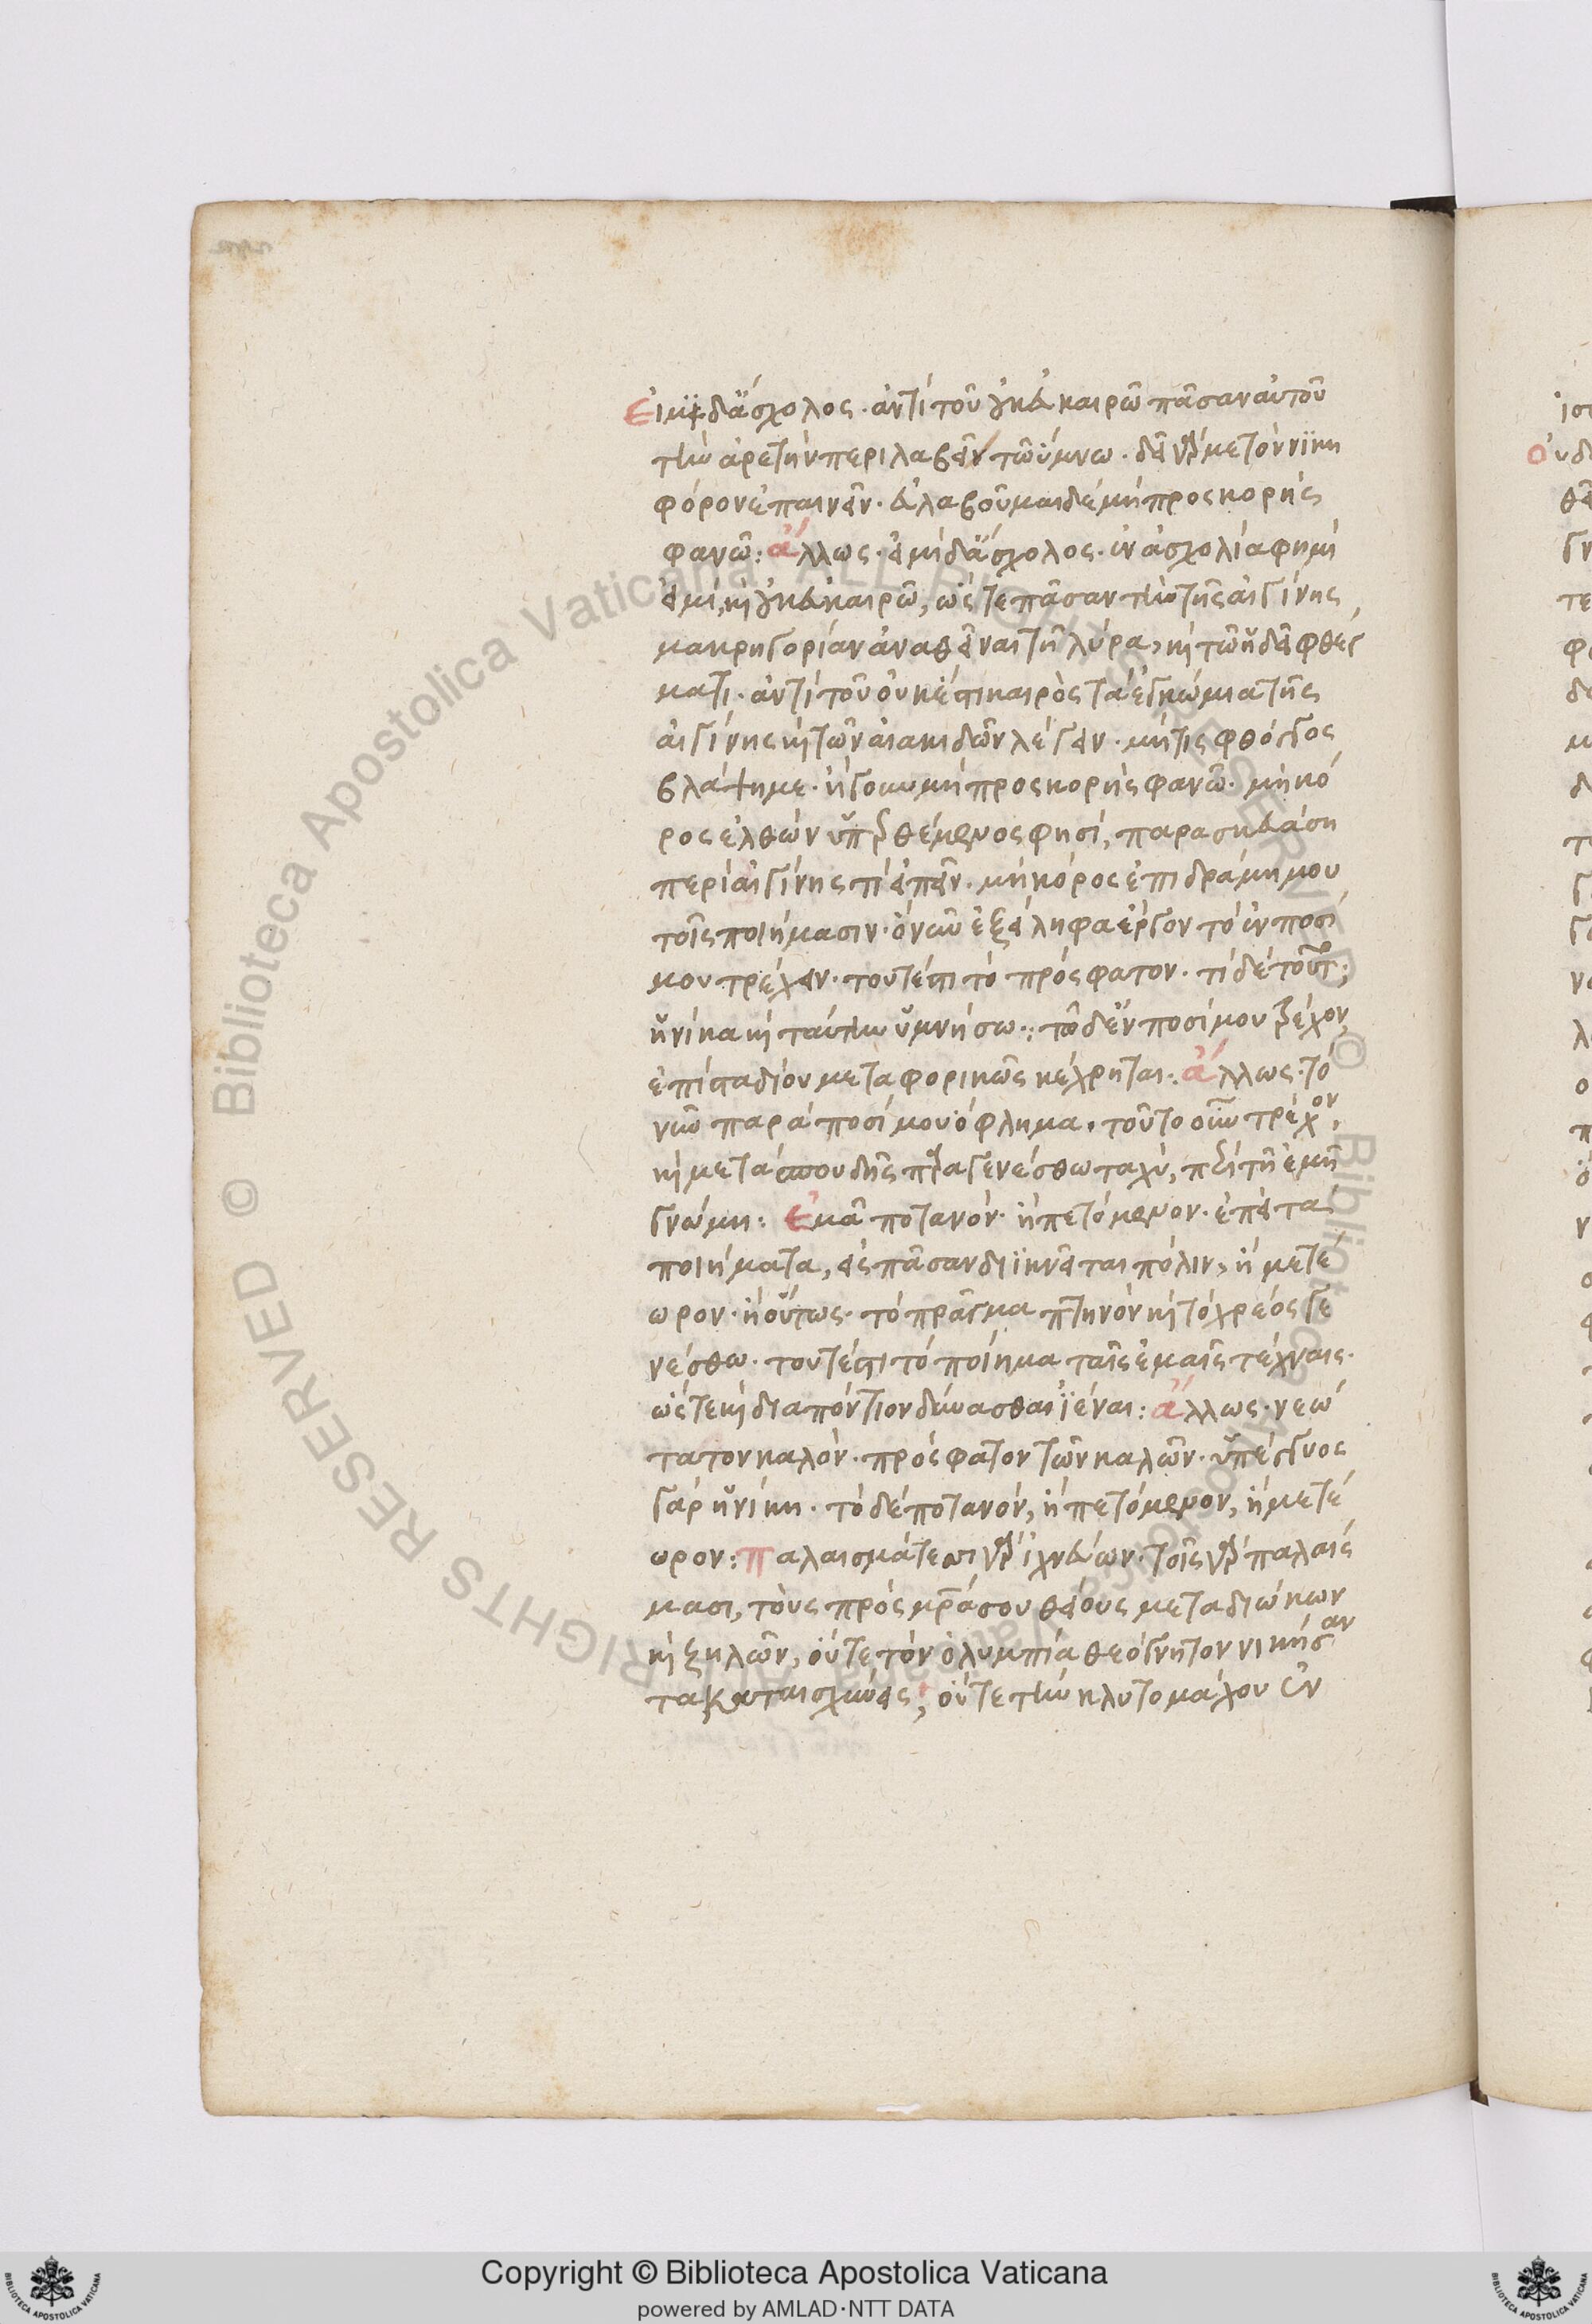 Εἰμὶ δ' ἄσχολος· ἀντὶ τοῦ οὐκ εὐκαιρῶ πᾶσαν αὐτοῦ
τὴν ἀρετὴν περιλαβεῖν τῷ ὕμνῳ· δεῖ γὰρ με τὸν νικη
φόρον ἐπαινεῖν· εὐλαβοῦμαι δὲ μὴ προσκορὴς
φανῶ: ἄλλως· εἰμὶ δ' ἄσχολος· ἐν ἀσχολίᾳ φημὶ
εἰμὶ, καὶ οὐκ εὐκαιρῶ, ὥστε πᾶσαν τὴν τῆς αἰγίνης
μακρηγορίαν ἀναθεῖναι τῇ λύρᾳ, καὶ τῷ ἡδεῖ φθέγ
ματι· ἀντὶ τοῦ οὐκ ἔστι καιρὸς τὰ ἐγκώμια τῆς
αἰγίνης καὶ τῶν αἰακιδῶν λέγειν· μή τις φθόγγος
βλάψῃ με· ἤγουν μὴ προσκορὴς φανῶ· μὴ κό
ρος ἐλθὼν ὑπερθέμενος φησὶ, παρασκευάσῃ
περὶ αἰγίνης τι εἰπεῖν· μὴ κόρος ἐπιδράμῃ μου
τοῖς ποιήμασιν· ὃ νῦν ἐξείληφα ἔργον τὸ ἐν ποσί
μου τρέχειν· τουτέστι τὸ πρόσφατον· τί δὲ τοῦτο;
ἡ νίκη καὶ ταύτην ὑμνήσω: τὸ δ' ἐν ποσί μου τρέχον
ἐπὶ σταδίου μεταφορικῶς κέχρηται: ἄλλως· τὸ
νῦν παρὰ ποσί μου ὄφλημα, τοῦτο οὖν τρέχον,
καὶ μετὰ σπουδῆς γενέσθω ταχὺ, τῇ ἐμῇ
γνώμῃ: Ἐμᾷ ποτανὸν· ἢ πετόμενον· ἐπεὶ τὰ
ποιήματα, εἰς πᾶσαν διϊκνεῖται πόλιν, ἢ μετέ
ωρον· ἢ οὕτως· τὸ πρᾶγμα πτηνὸν καὶ τὸ χρέος γε
νέσθω· τουτέστι τὸ ποίημα ταῖς ἐμαῖς τέχναις·
ὥστε καὶ διαπόντιον δύνασθαι ἰέναι: ἄλλως· νεώ
τατον καλὸν· πρόσφατον τῶν καλῶν· ὑπέγγυος
γὰρ ἡ νίκη· τὸ δὲ ποτανὸν, ἢ πετόμενον, ἢ μετέ
ωρον: Παλαισμάτεσσι γὰρ ἰχνεύων· τοῖς γὰρ παλαίς
μασι, τοὺς πρὸς μητρός σου θείους μεταδιώκων
καὶ ζηλῶν, οὔτε τὸν ὀλυμπία θεόγνητον νικήσαν
τα καταισχύνεις, οὔτε τὴν κλυτομάχου ἐν